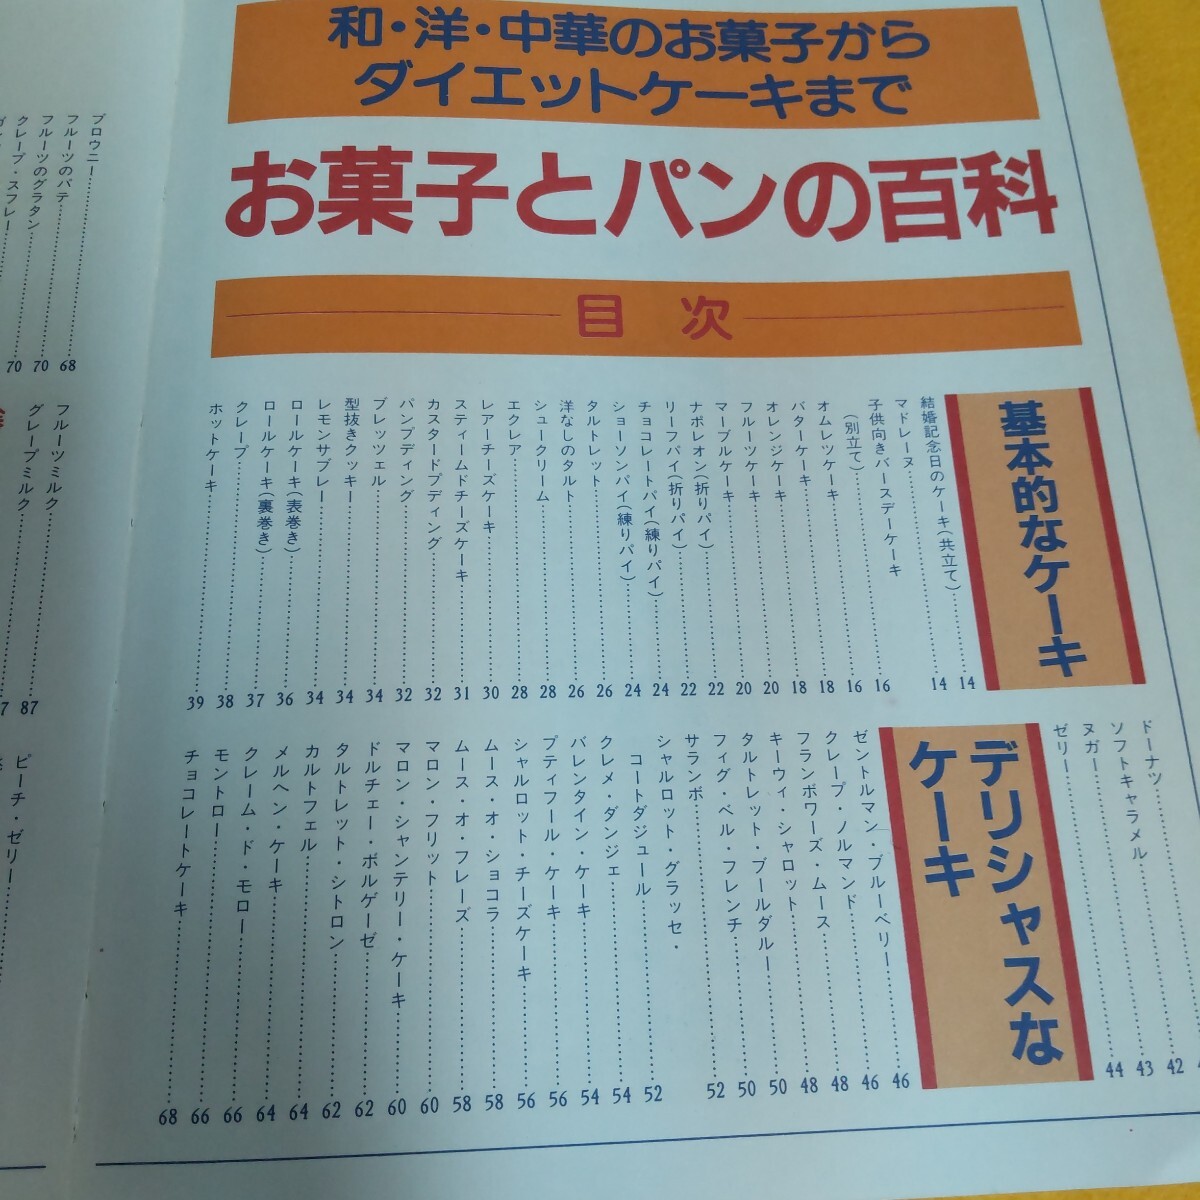 和・洋・中華のお菓子から
ダイエットケーキまで
お菓子とパンの百科
目 次
基本的なケーキ
結婚記念日のケーキ(共立て)……14
マドレーヌ……14
子供向きバースデーケーキ
(別立て)……16
オムレツケーキ……16
バターケーキ……18
オレンジケーキ……18
フルーツケーキ……20
マーブルケーキ……20
ナポレオン(折りパイ)……22
リーフパイ(折りパイ)……22
チョコレートパイ(練りパイ)……24
ショーソンパイ(練りパイ)……24
タルトレット……26
洋なしのタルト……26
シュークリーム……28
エクレア……28
レアーチーズケーキ……30
スティームドチーズケーキ……31
カスタードプディング……32
パンプディング……32
プレッツェル……34
型抜きクッキー……34
レモンサブレー……34
ロールケーキ(表巻き)……36
ロールケーキ(裏巻き)……37
クレープ……38
ホットケーキ……39
ドーナツ……
ソフトキャラメル……42
ヌガー……43
ゼリー……44
デリシャスな
ケーキ
ゼントルマン・ブルーベリー……46
クレープ・ノルマンド……46
フランボワーズ・ムース……48
キーウィ・シャロット……48
タルトレット・ブールダルー……50
フィグ・ベル・フレンチ……50
サランボ……52
シャルロット・グラッセ・
コートダジュール……52
クレメ・ダンジェ……54
バレンタイン・ケーキ……54
プティフール・ケーキ……56
シャルロット・チーズケーキ……56
ムース・オ・ショコラ……58
ムース・オ・フレーズ……58
マロン・フリット……60
マロン・シャンテリー・ケーキ……60
ドルチェー・ボルゲーゼ……62
タルトレット・シトロン……62
カルトフェル……64
メルヘン・ケーキ……64
クレーム・ド・モロー……66
モントロー……66
チョコレートケーキ……68
ブロウニー……68
フルーツのパテ……70
フルーツのグラタン……70
クレープ・スフレー……
フルーツミルク……87
グレープミルク……
ピーチ・ゼリー……